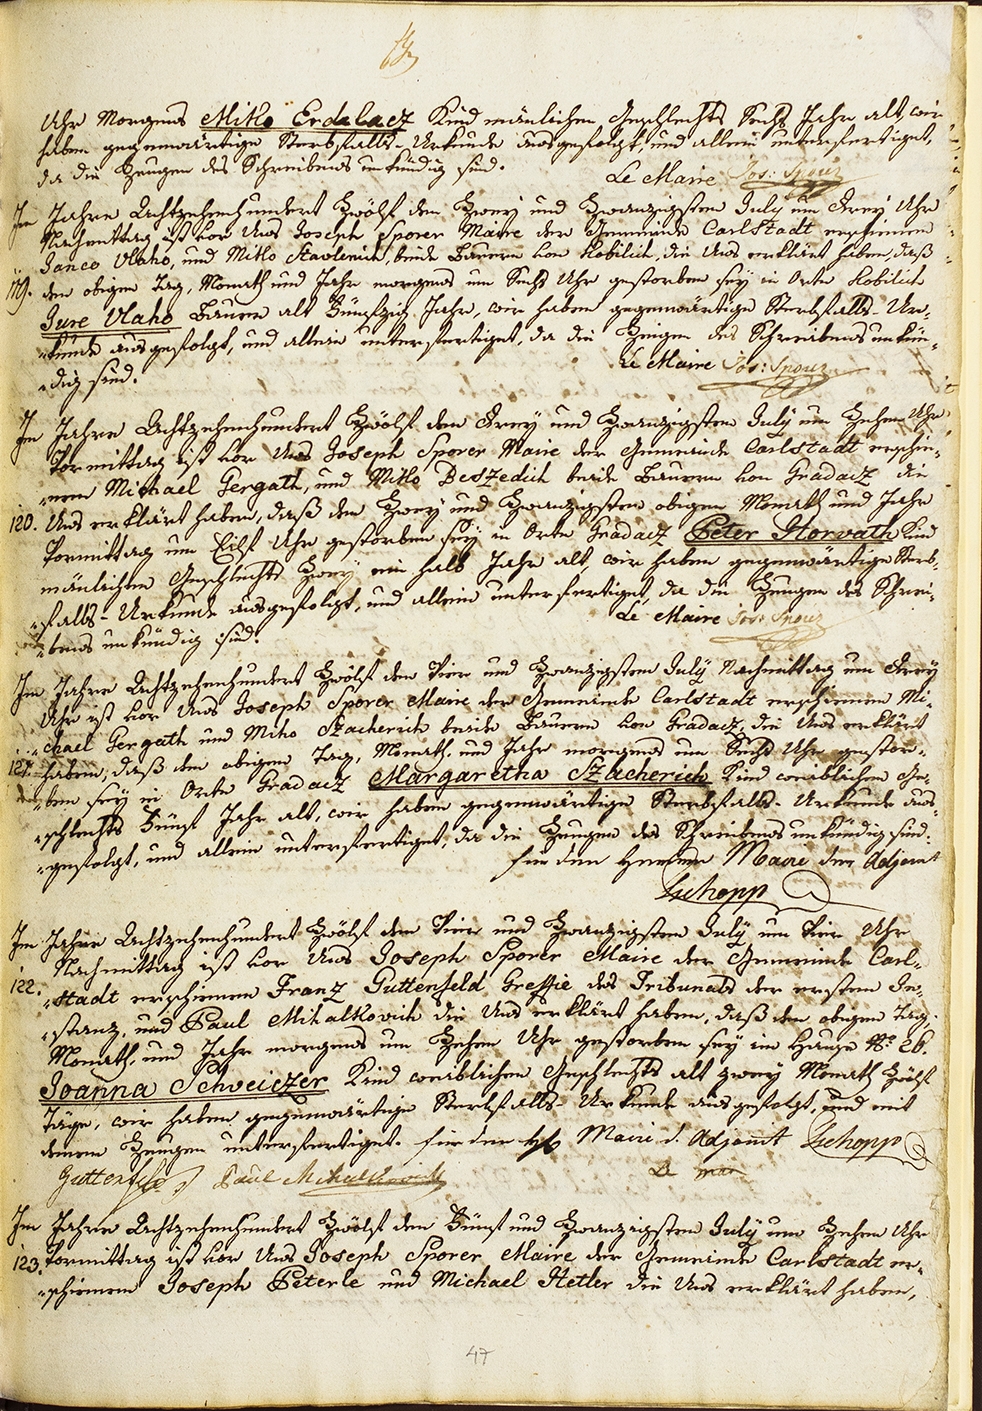 Uhr Morgens Mitko Erdelacz Kind mänlichen Geschlechts Sechs Jahr alt, wir
haben gegenwärtige Sterbfalls-Urkunde ausgefolgt, und allein unterfertiget,
da die Zeugen des Schreibens unkündig sind.
Le Maire Jos: Sporer
Im Jahre Achtzehenhundert Zwölf den Zwey und Zwanzigsten July um Drey Uhr
Nachmittag ist vor Uns Joseph Sporer Maire der Gemeinde Carlstadt erschienen
Janco Vlaho, und Mitko Stavlenich, beide Bauern von Kobilich, die Uns erklärt haben, daß
119. den obigen Tag, Monath und Jahr morgens um Sechs Uhr gestorben sey in Orte Kobilich
Jure Vlaho Bauer alt Fünfzig Jahr, wir haben gegenwärtige Sterbfalls-Ur-
kunde ausgefolgt, und allein unterfertiget, da die Zeugen des Schreibens unkün-
dig sind.
Le Maire Jos: Sporer
Im Jahre Achtzehenhundert Zwölf den Drey und Zwanzigsten July um Zehen Uhr
Vormittag ist vor Uns Joseph Sporer Maire der Gemeinde Carlstadt erschie-
nen Michael Gergath, und Mitko Beszedich beide Bauern von Gradacz die
120. Uns erklärt haben, daß den Zwey und Zwanzigsten obigen Monath und Jahr
Vormittag um Eilf Uhr gestorben sey in Orte Gradacz Peter Horvath Kind
mänlichen Geschlechts Zwey ein halb Jahr alt, wir haben gegenwärtige Sterb-
falls-Urkunde ausgefolgt, und allein unterfertiget, da die Zeugen des Schrei-
bens unkündig sind.
Le Maire Jos: Sporer
Im Jahre Achtzehenhundert Zwölf den Vier und Zwanzigsten July Nachmittag um Drey
Uhr ist vor Uns Joseph Sporer Maire der Gemeinde Carlstadt erschienen Mi-
chael Gergath und Miho Szacherich beide Bauern von Gradacz, die Uns erklärt
121. haben, daß den obigen Tag, Monath und Jahr morgens um Sechs Uhr gestor-
ben sey in Orte Gradacz Margaretha Szacherich Kind weiblichen Ge-
schlechts Fünf Jahr alt, wir haben gegenwärtige Sterbfalls-Urkunde aus-
gefolgt, und allein unterfertiget, da die Zeugen des Schreibens unkündig sind.
für den Herrn Maire der Adjoint
Tschopp
Im Jahre Achtzehenhundert Zwölf den Vier und Zwanzigsten July um Vier Uhr
Nachmittag ist vor Uns Joseph Sporer Maire der Gemeinde Carl-
122. stadt erschienen Franz Guttenfeld Greffie des Tribunals der ersten In-
stanz, und Paul Mihalkovich die Uns erklärt haben, daß den obigen Tag
Monath und Jahr morgens um Zehen Uhr gestorben sey im Hause N: 26.
Joanna Schweiczer Kind weiblichen Geschlechts alt zwey Monath Zwölf
Täge, wir haben gegenwärtige Sterbfalls-Urkunde ausgefolgt, und mit
denen Zeugen unterfertiget. für den Maire d. Adjoint Tschopp
Guttenfeld Paul Mihalkovich Le mair
Im Jahre Achtzehenhundert Zwölf den Fünf und Zwanzigsten July um Zehen Uhr
123. Vormittag ist vor Uns Joseph Sporer Maire der Gemeinde Carlstadt er-
schienen Joseph Peterle und Michael Stetler die Uns erklärt haben,
47